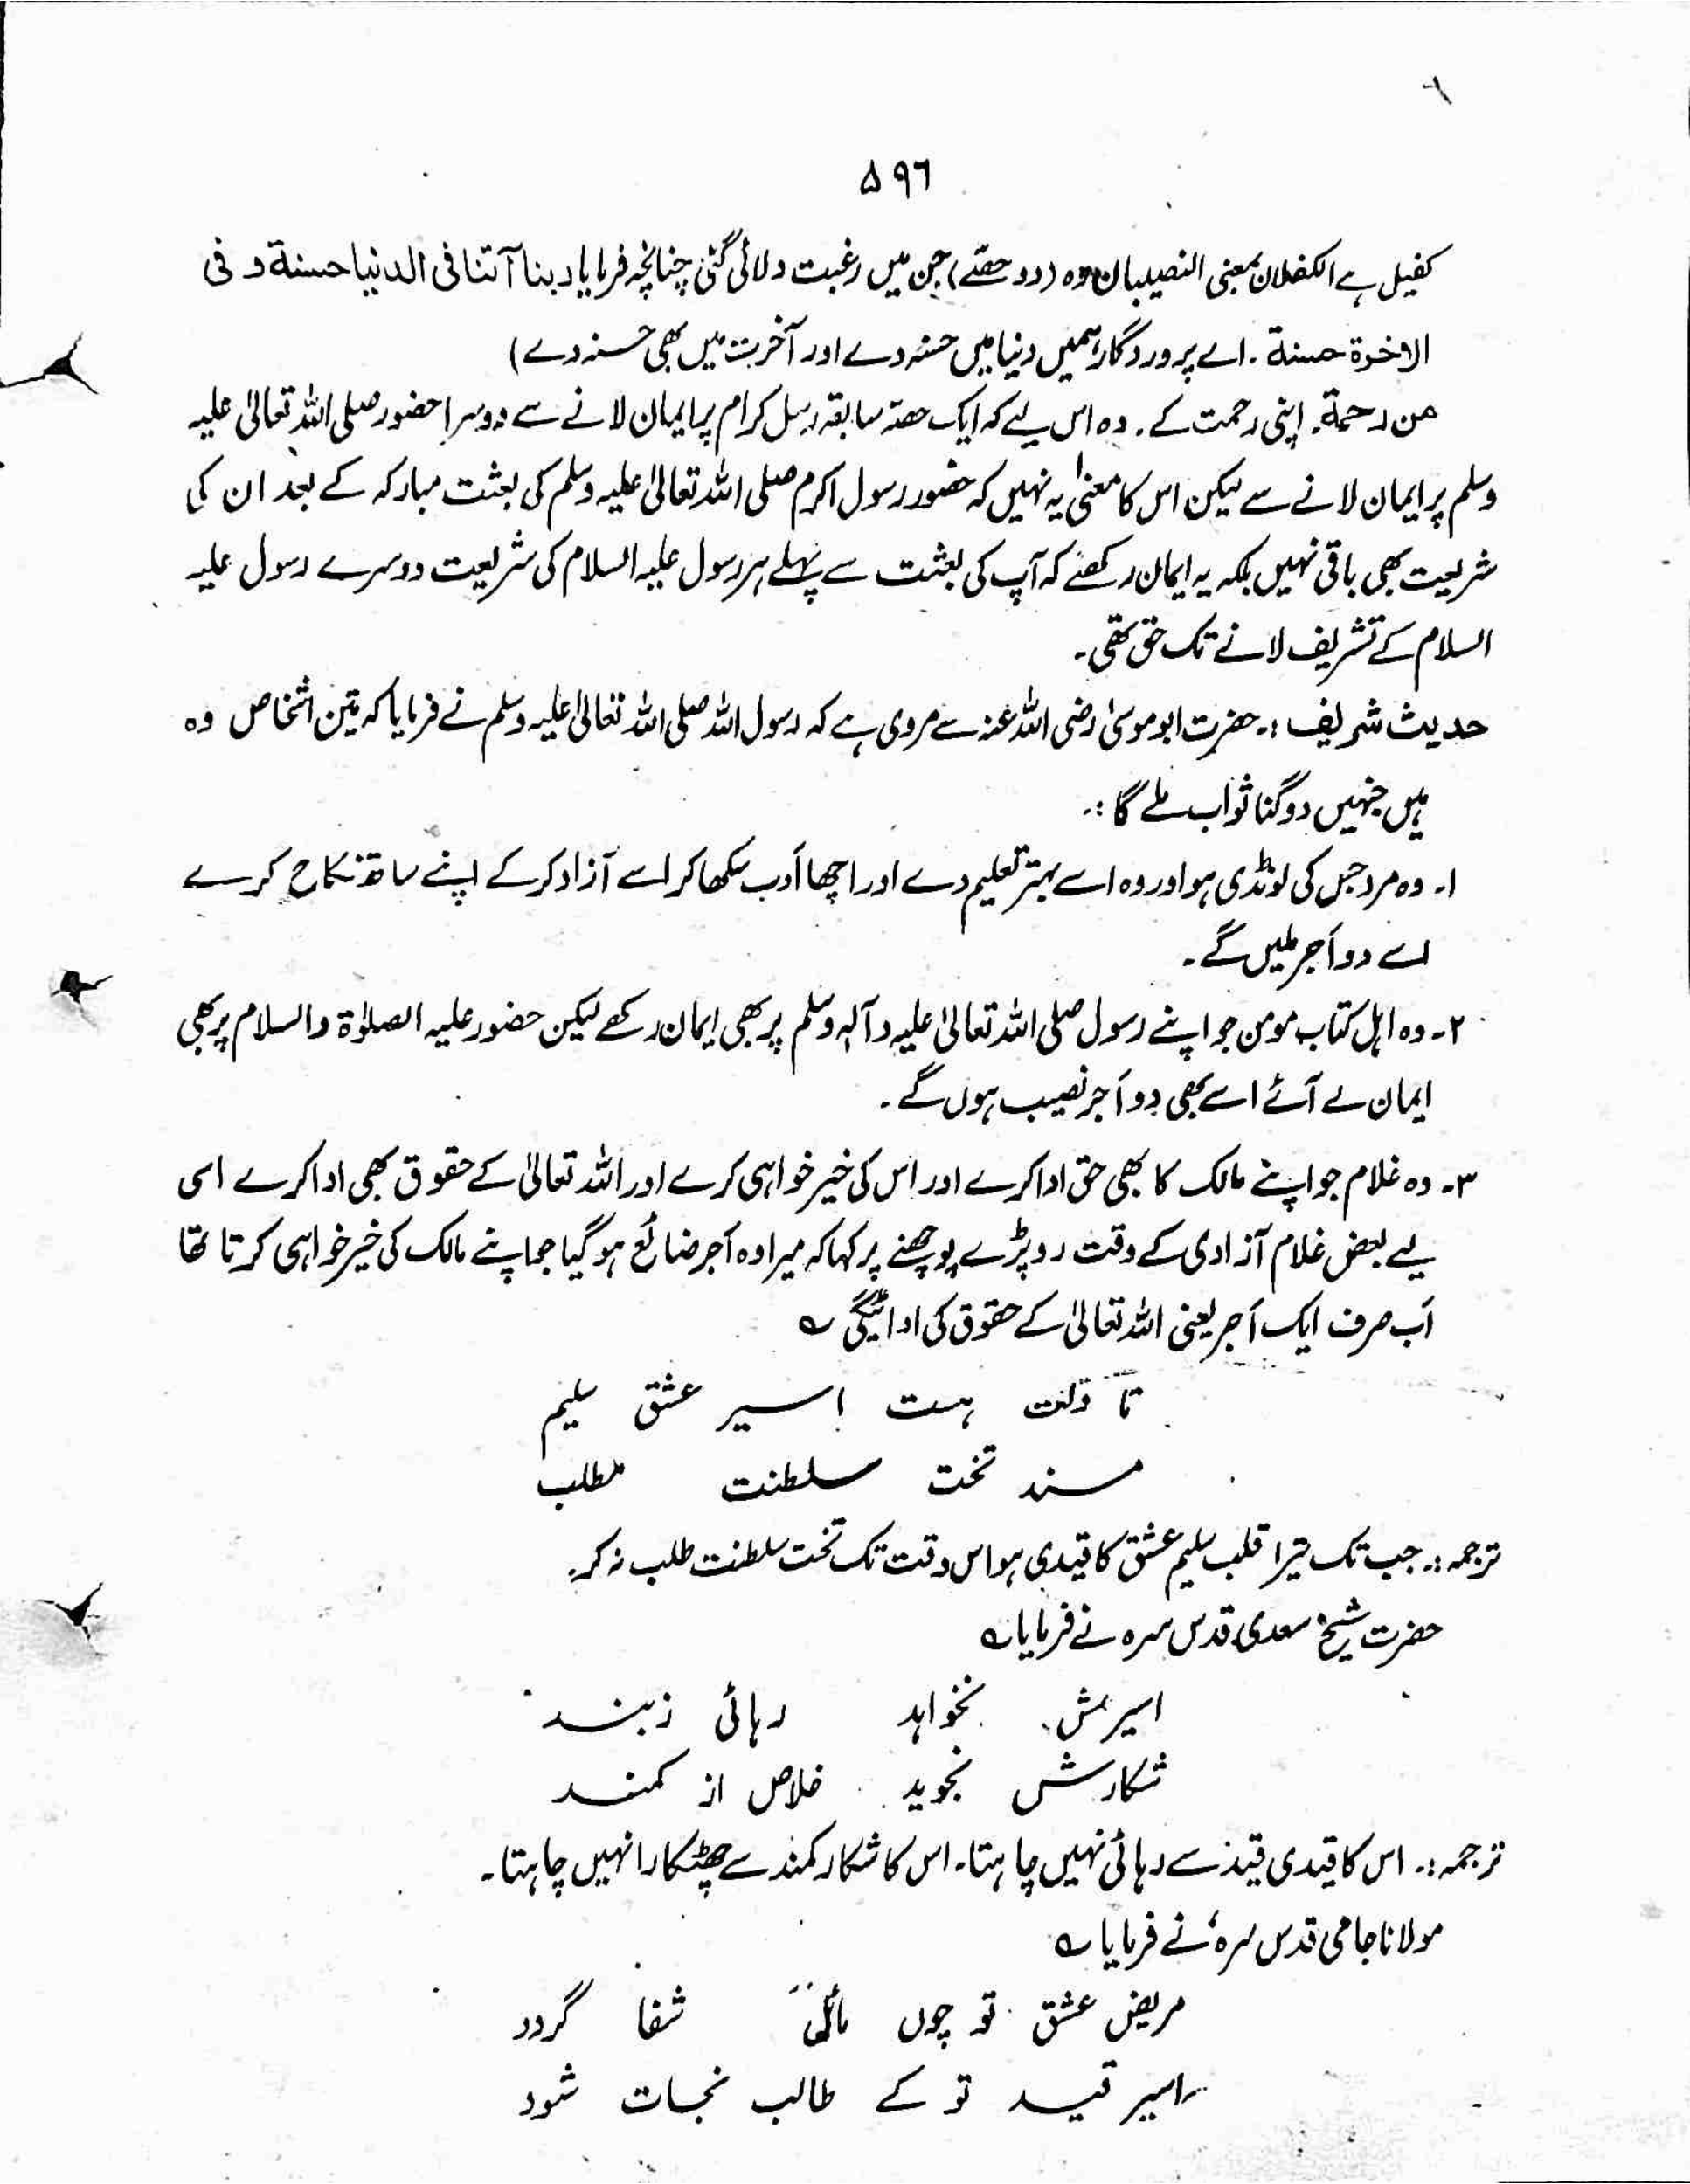 ۵۹٦
کفیل ہے الکفلان بمعنی النصیبان وہ (دو حصّے) جن میں رغبت دلائی گئی چنانچہ فرمایا ربنا آتنا فی الدنیا حسنة و فی
الاخرة حسنة ۔ اے پروردگار ہمیں دنیا میں حسنہ دے اور آخرت میں بھی حسنہ دے)
من رحمة ۔ اپنی رحمت کے ۔ وہ اس لیے کہ ایک حصّہ سابقہ رسل کرام پر ایمان لانے سے دوسرا حضور صلی اللہ تعالیٰ علیہ
وسلم پر ایمان لانے سے لیکن اس کا معنیٰ یہ نہیں کہ حضور رسول اکرم صلی اللہ تعالیٰ علیہ وسلم کی بعثت مبارکہ کے بعد ان کی
شریعت بھی باقی نہیں بلکہ یہ ایمان رکھنے کہ آپ کی بعثت سے پہلے ہر رسول علیہ السلام کی شریعت دوسرے رسول علیہ
السلام کے تشریف لانے تک حق تھی ۔
حدیث شریف :۔ حضرت ابو موسیٰ رضی اللہ عنہ سے مروی ہے کہ رسول اللہ صلی اللہ تعالیٰ علیہ وسلم نے فرمایا کہ تین اشخاص وہ
ہیں جنہیں دوگنا ثواب ملے گا :۔
۱۔ وہ مرد جس کی لونڈی ہو اور وہ اسے بہتر تعلیم دے اور اچھا اَدب سکھا کر اسے آزاد کر کے اپنے ساتھ نکاح کرے
اسے دو اَجر ملیں گے ۔
۲۔ وہ اہل کتاب مومن جو اپنے رسول صلی اللہ تعالیٰ علیہ وآلہ وسلم پر بھی ایمان رکھے لیکن حضور علیہ الصلوٰۃ والسلام پر بھی
ایمان لے آئے اسے بھی دو اَجر نصیب ہوں گے ۔
۳۔ وہ غلام جو اپنے مالک کا بھی حق ادا کرے اور اس کی خیر خواہی کرے اور اللہ تعالیٰ کے حقوق بھی ادا کرے اسی
لیے بعض غلام آزادی کے وقت رو پڑے پوچھنے پر کہا کہ میرا وہ اَجر ضائع ہو گیا جو اپنے مالک کی خیر خواہی کرتا تھا
اَب صرف ایک اَجر یعنی اللہ تعالیٰ کے حقوق کی ادائیگی ؎
تا دلت ہست اسیر عشق سلیم
مسند تخت سلطنت مطلب
ترجمہ :۔ جب تک تیرا قلب سلیم عشق کا قیدی ہو اس وقت تک تخت سلطنت طلب نہ کر ۔
حضرت شیخ سعدی قدس سرہ نے فرمایا ؎
اسیرش نخواہد رہائی ز بند
شکارش نجوید خلاص از کمند
ترجمہ :۔ اس کا قیدی قید سے رہائی نہیں چاہتا ۔ اس کا شکار کمند سے چھٹکارا نہیں چاہتا ۔
مولانا جامی قدس سرہٗ نے فرمایا ؎
مریض عشق تو چوں مائل شفا گردد
اسیر قید تو کے طالب نجات شود